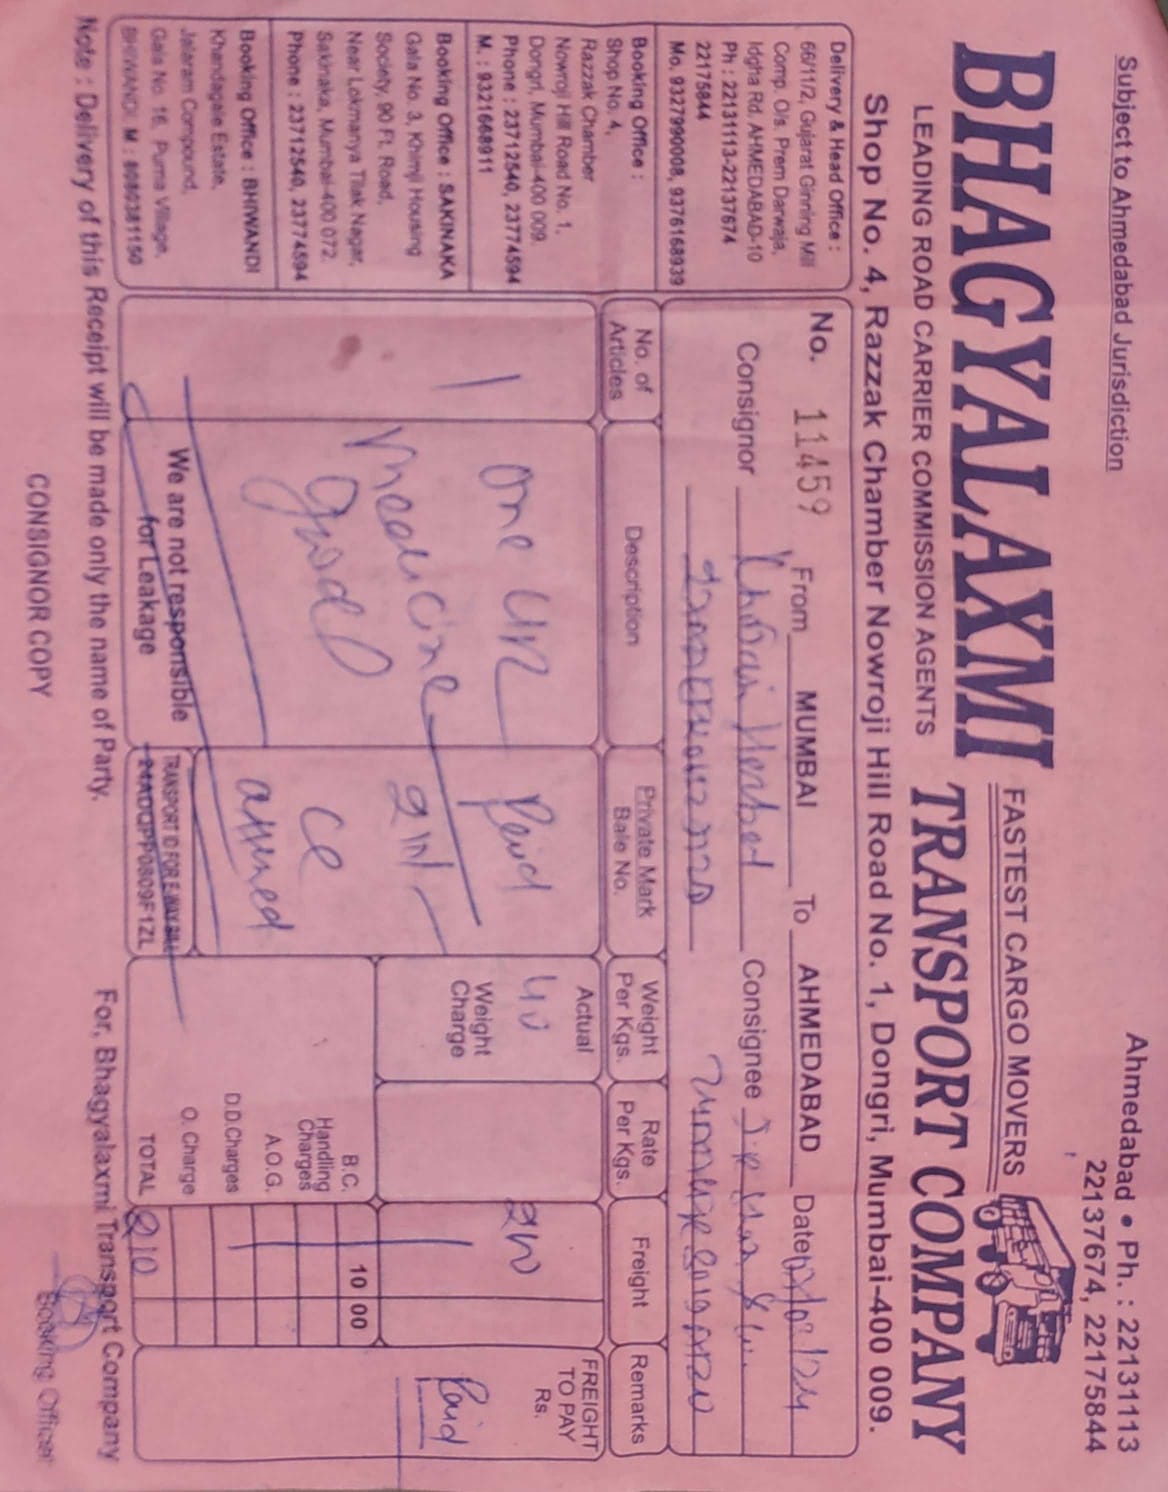 Subject to Ahmedabad Jurisdiction
Ahmedabad • Ph. : 22131113
22137674, 22175844
BHAGYALAXMI
FASTEST CARGO MOVERS
TRANSPORT COMPANY
LEADING ROAD CARRIER COMMISSION AGENTS
Shop No. 4, Razzak Chamber Nowroji Hill Road No. 1, Dongri, Mumbai-400 009.
Delivery & Head Office :
66/11/2, Gujarat Ginning Mill
Comp. O/s. Prem Darwaja,
Idgha Rd. AHMEDABAD-10
Ph : 22131113-22137674
22175844
Mo. 9327990008, 9376168939
Booking Office :
Shop No. 4,
Razzak Chamber
Nowroji Hill Road No. 1,
Dongri, Mumbai-400 009.
Phone : 23712540, 23774594
M. : 9321668911
Booking Office : SAKINAKA
Gala No. 3, Khimji Housing
Society, 90 Ft. Road,
Near Lokmanya Tilak Nagar,
Sakinaka, Mumbai-400 072.
Phone : 23712540, 23774594
Booking Office : BHIWANDI
Khandagale Estate,
Jalaram Compound,
Gala No. 16, Purna Village,
BHIWANDI. M : 8080381150
No. 11459 From MUMBAI To AHMEDABAD Date
Consignor Herbal Consignee
No. of
Articles
Description
Private Mark
Bale No.
Weight
Per Kgs.
Rate
Per Kgs.
Freight
Remarks
1
one
medicine
good
Paid
CE
Actual
40
Weight
Charge
200
FREIGHT
TO PAY
Rs.
Paid
B.C. 10 00
Handling
Charges
A.O.G.
D.D.Charges
O. Charge
TOTAL 210
We are not responsible
for Leakage
TRANSPORT ID FOR E-WAY BILL
24ADQPP0809F1ZL
Note : Delivery of this Receipt will be made only the name of Party.
For, Bhagyalaxmi Transport Company
Booking Officer
CONSIGNOR COPY